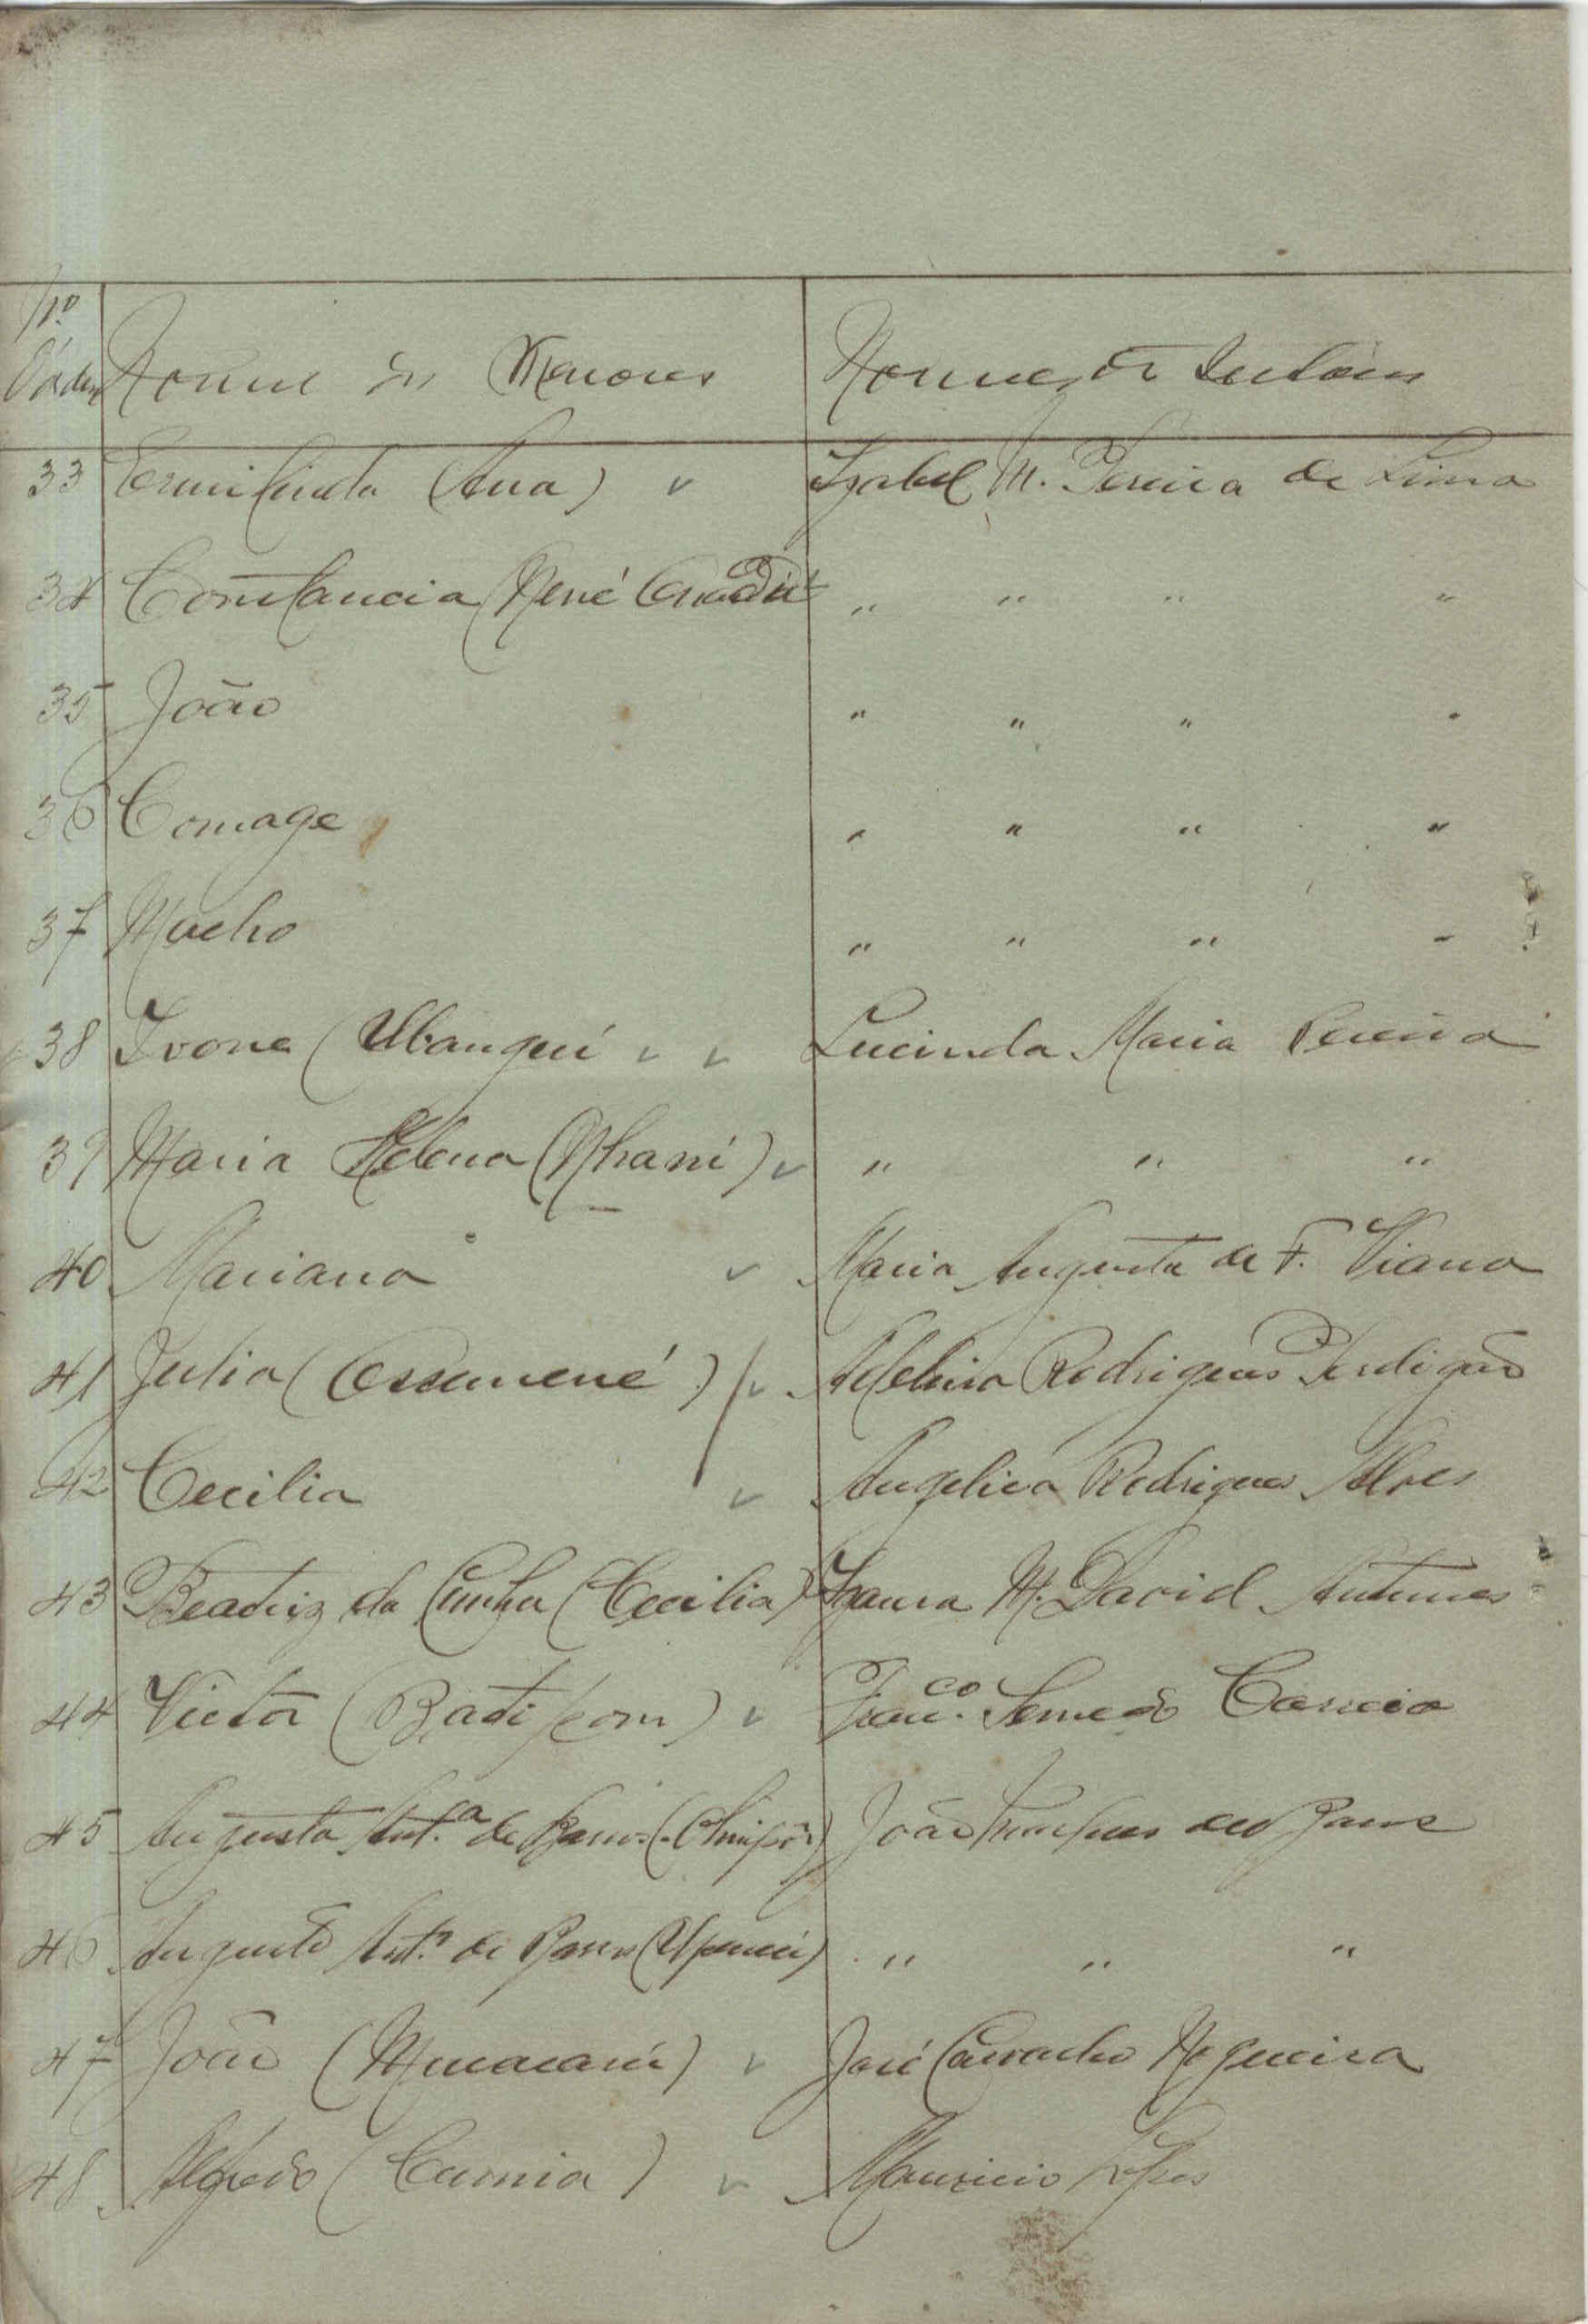 Nº
Órdem Nome dos Menores Nomes dos Tutores
33 Ermilinda (Ana) v Izabel M. Pereira de Lima
34 Constancia (René " " " "
35 João " " " "
36 Comage " " " "
37 Macho " " " "
38 Ivone (Ubangui v v Lucinda Maria Pereira
39 Maria Helena (Nhani) v " " "
40 Mariana v Maria Augusta de F. Viana
41 Julia (Ossumené) v Adelina Rodrigues Perdigão
42 Cecilia v Angelica Rodrigues Alves
43 Beatriz da Cunha (Cecilia) Izaura M. David Antunes
44 Victor (Batipom) v Franc.co Semedo Correia
45 Augusta Ant.a de Barros João de Barros
46 Augusto Ant.º de Barros " " "
47 João v José Carvalho Nogueira
48 Alfredo (Cumia) v Mauricio Lopes